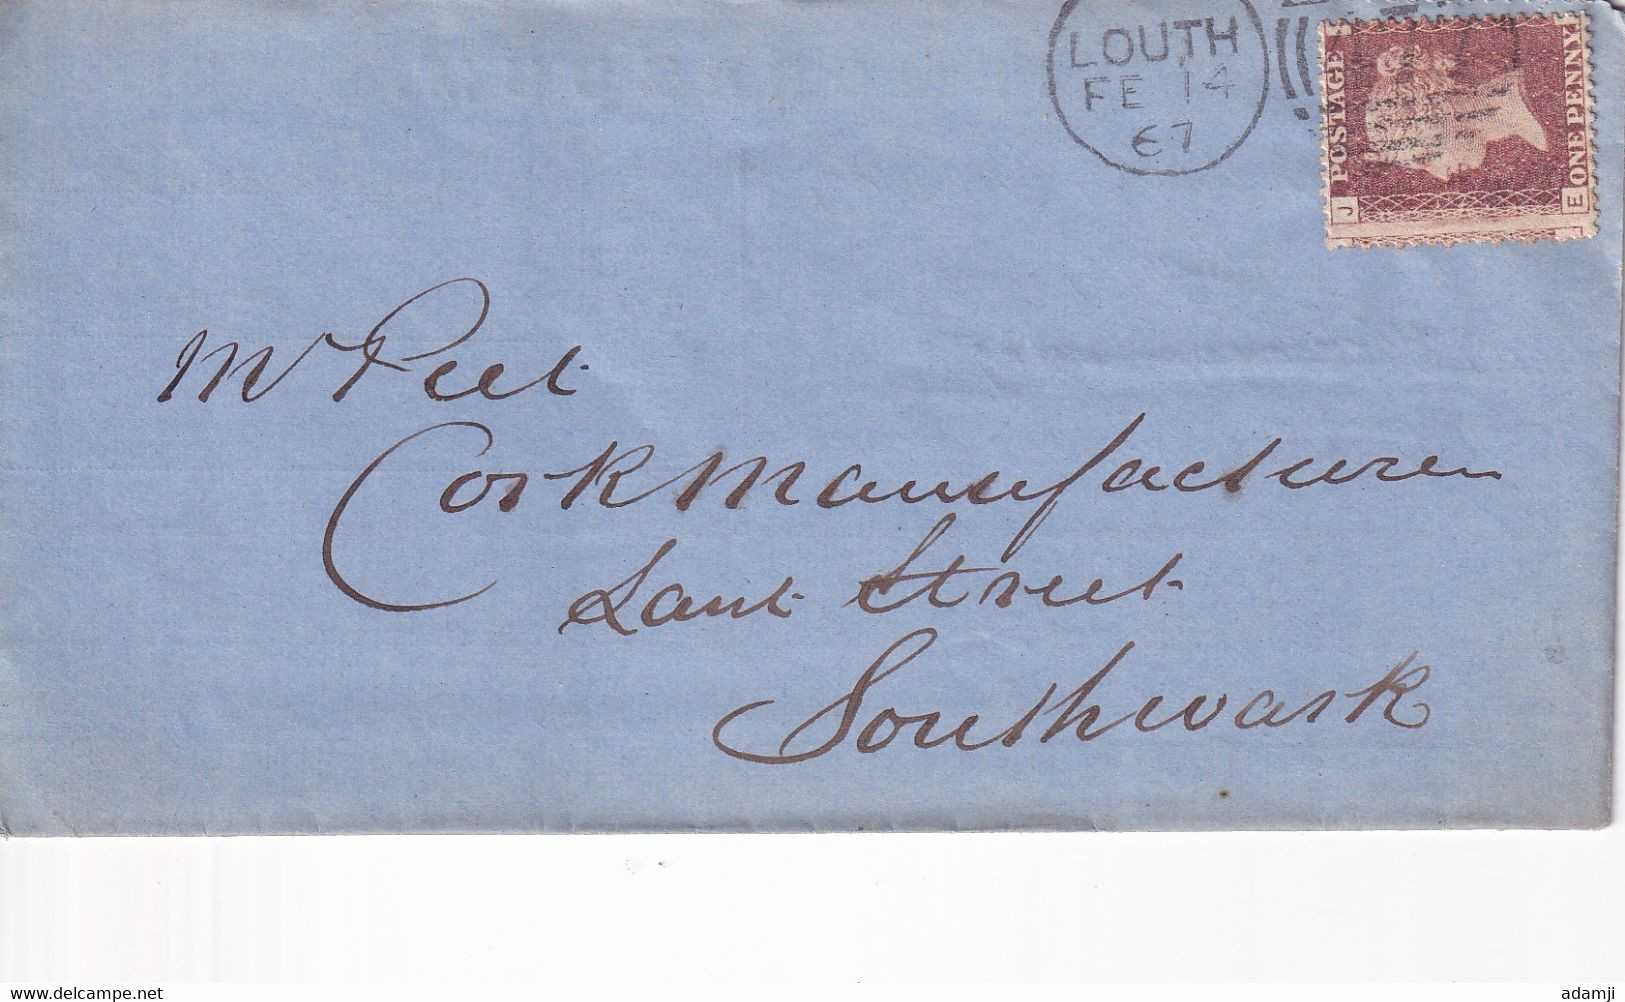 LOUTH
FE 14
67
POSTAGE
ONE PENNY
J
E
Mr Peet
Cork Manufacturer
Lant Street
Southwark
www.delcampe.net
adamji